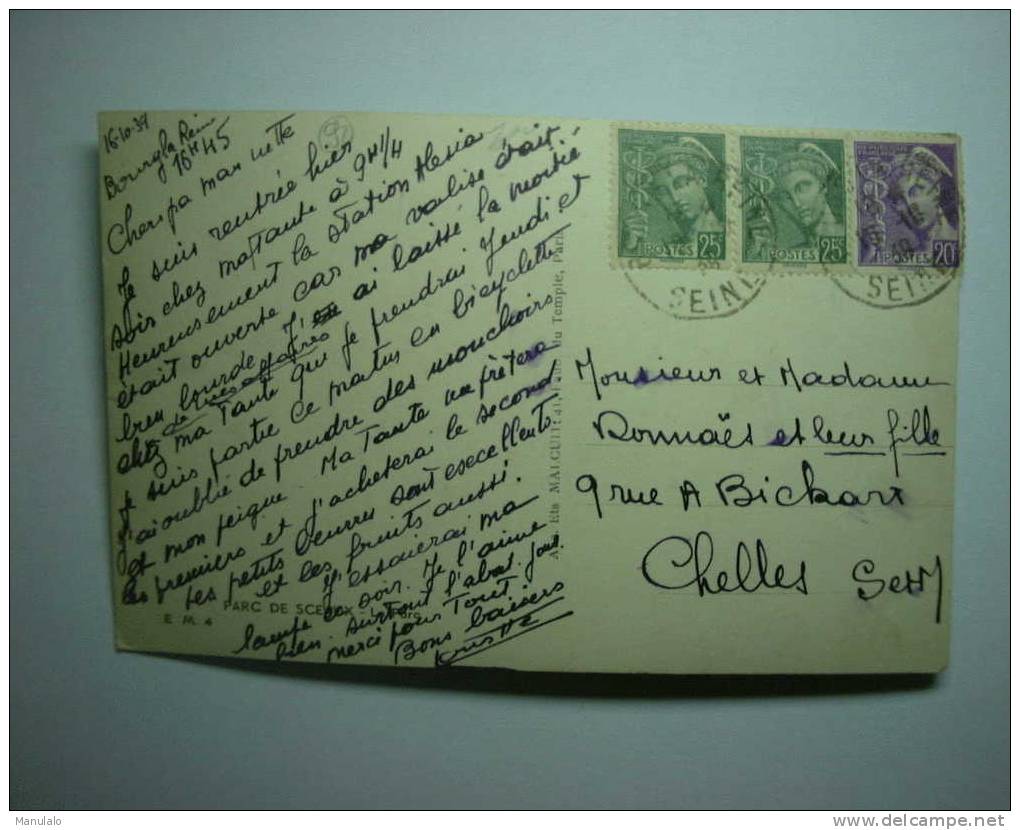 16-10-39
Bourg la Reine
16H45
Chers pa man
Je suis rentrée hier
soir chez ma Tante à 9H1/4
Heureusement la station Alesia
était ouverte car ma valise était
bien lourde. J'ai laissé la moitié
de mes affaires
chez ma Tante que je prendrai Jeudi et
je suis partie ce matin en bicyclette
J'ai oublié de prendre des mouchoirs
et mon peigne. Ma Tante me prêtera
les premiers et j'acheterai le second
Les petits beurres sont excellents
et les fruits aussi.
J'essaierai ma
lampe ce soir. Je l'aime
bien surtout l'abat-jour.
merci pour Tout
Bons baisers
PARC DE SCEAUX
E. M. 4
Ets MALCUIT, 41, du Temple, Paris
RÉPUBLIQUE FRANÇAISE
POSTES 25c
POSTES 25c
POSTES 20c
SEINE
SEINE
Monsieur et Madame
Donnaës et leur fille
9 rue A Bickart
Chelles S et M
Manulalo
www.delcampe.net